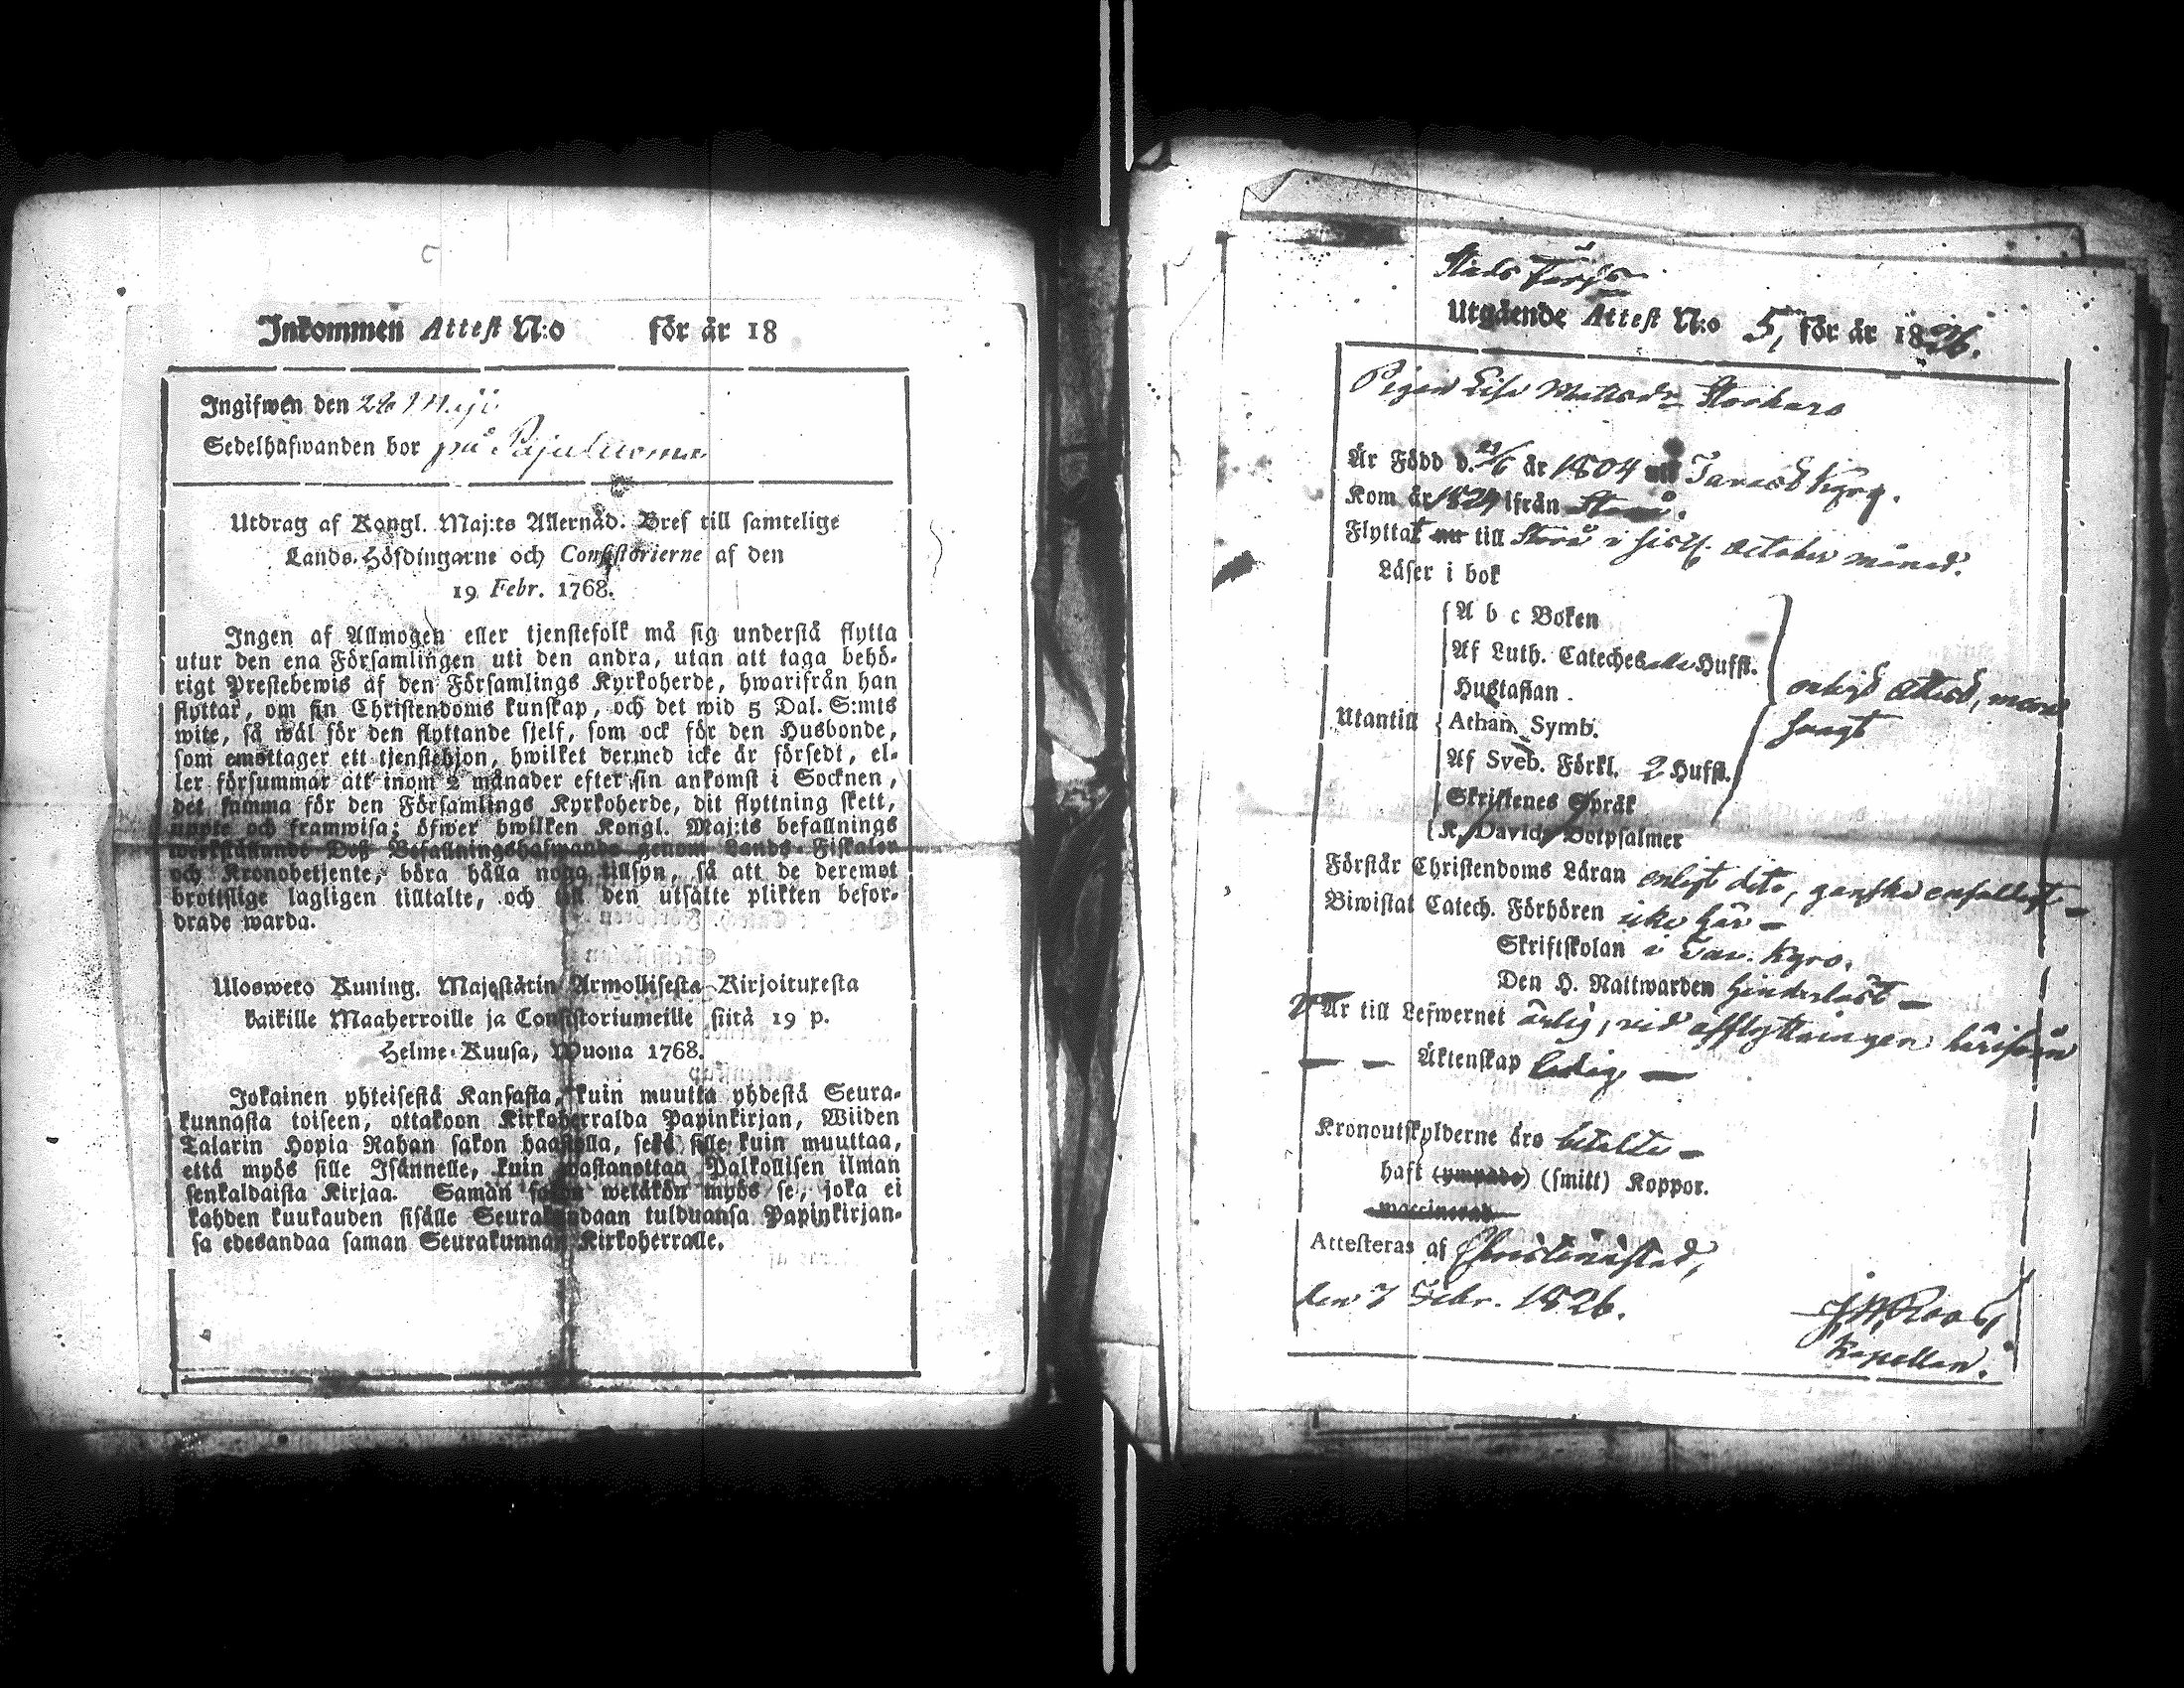 Inkommen Attest N:o för år 18
Ingifwen den 26 Maji
Sedelhafwanden bor på Pajuluoma
Utdrag af Kongl. Maj:ts Allernåd. Bref till samtelige
Lands-Höfdingarne och Consistorierne af den
19 Febr. 1768.
Ingen af Allmogen eller tjenstefolk må sig understå flytta
utur den ena Församlingen uti den andra, utan att taga behö-
rigt Prestebewis af den Församlings Kyrkoherde, hwarifrån han
flyttar, om sin Christendoms kunskap, och det wid 5 Dal. S:mts
wite, så wäl för den flyttande sjelf, som ock för den Husbonde,
som emottager ett tjenstehjon, hwilket dermed icke är försedt, el-
ler försummar att inom 2 månader efter sin ankomst i Socknen,
det samma för den Församlings Kyrkoherde, dit flyttning skett,
uppte och framwisa; öfwer hwilken Kongl. Maj:ts befallnings
werkställande Deß Befallningshafwande genom Lands-Fiskaler
och Kronobetjente, böra hålla noga tillsyn, så att de deremot
brottslige lagligen tilltalte, och till den utsatte plikten befor-
drade warda.
Ulosweto Kuning. Majestätin Armollisesta Kirjoituxesta
kaikille Maaherroille ja Consistoriumeille siitä 19 p.
Helme-Kuusa, Wuona 1768.
Jokainen yhteisestä Kansasta, kuin muutta yhdestä Seura-
kunnasta toiseen, ottakoon Kirkoherralda Papinkirjan, Wiiden
Talarin Hopia Rahan sakon haastolla, sekä sille kuin muuttaa,
että myös sille Isännelle, kuin wastanottaa Palkollisen ilman
senkaldaista Kirjaa. Saman sakon wetäkön myös se, joka ei
kahden kuukauden sisälle Seurakundaan tulduansa Papinkirjan-
sa edesandaa saman Seurakunnan Kirkoherralle.
Utgående Attest N:o 5, för år 1826.
Pigan Lisa Mattsdr Storkars
Är Född d. 21/6 år 1804 uti Tavastkyro.
Kom år 1824 ifrån Storå.
Flyttat nu till Storå i sistl. October månad.
Läser i bok
Utantill
A b c Boken
Af Luth. Cateches alla Hufst.
Hustaflan
Athan. Symb.
Af Sveb. Förkl. 2 Hufst.
Skriftenes Språk
K. Davids Botpsalmer
enligt attest, men
swagt
Förstår Christendoms Läran enligt dito, ganska enfaldigt
Biwistat Catech. Förhören icke här
Skriftskolan i Tav. Kyro.
Den H. Nattwarden hinderlöst
Är till Lefwernet ärlig, vid afflyttningen härifrån
Äktenskap ledig
Kronoutskylderne äro betalte
haft (ympade) (smitt) Koppor.
vaccinerad
Attesteras af Christinestad,
den 7 Febr. 1826.
Kapellan.